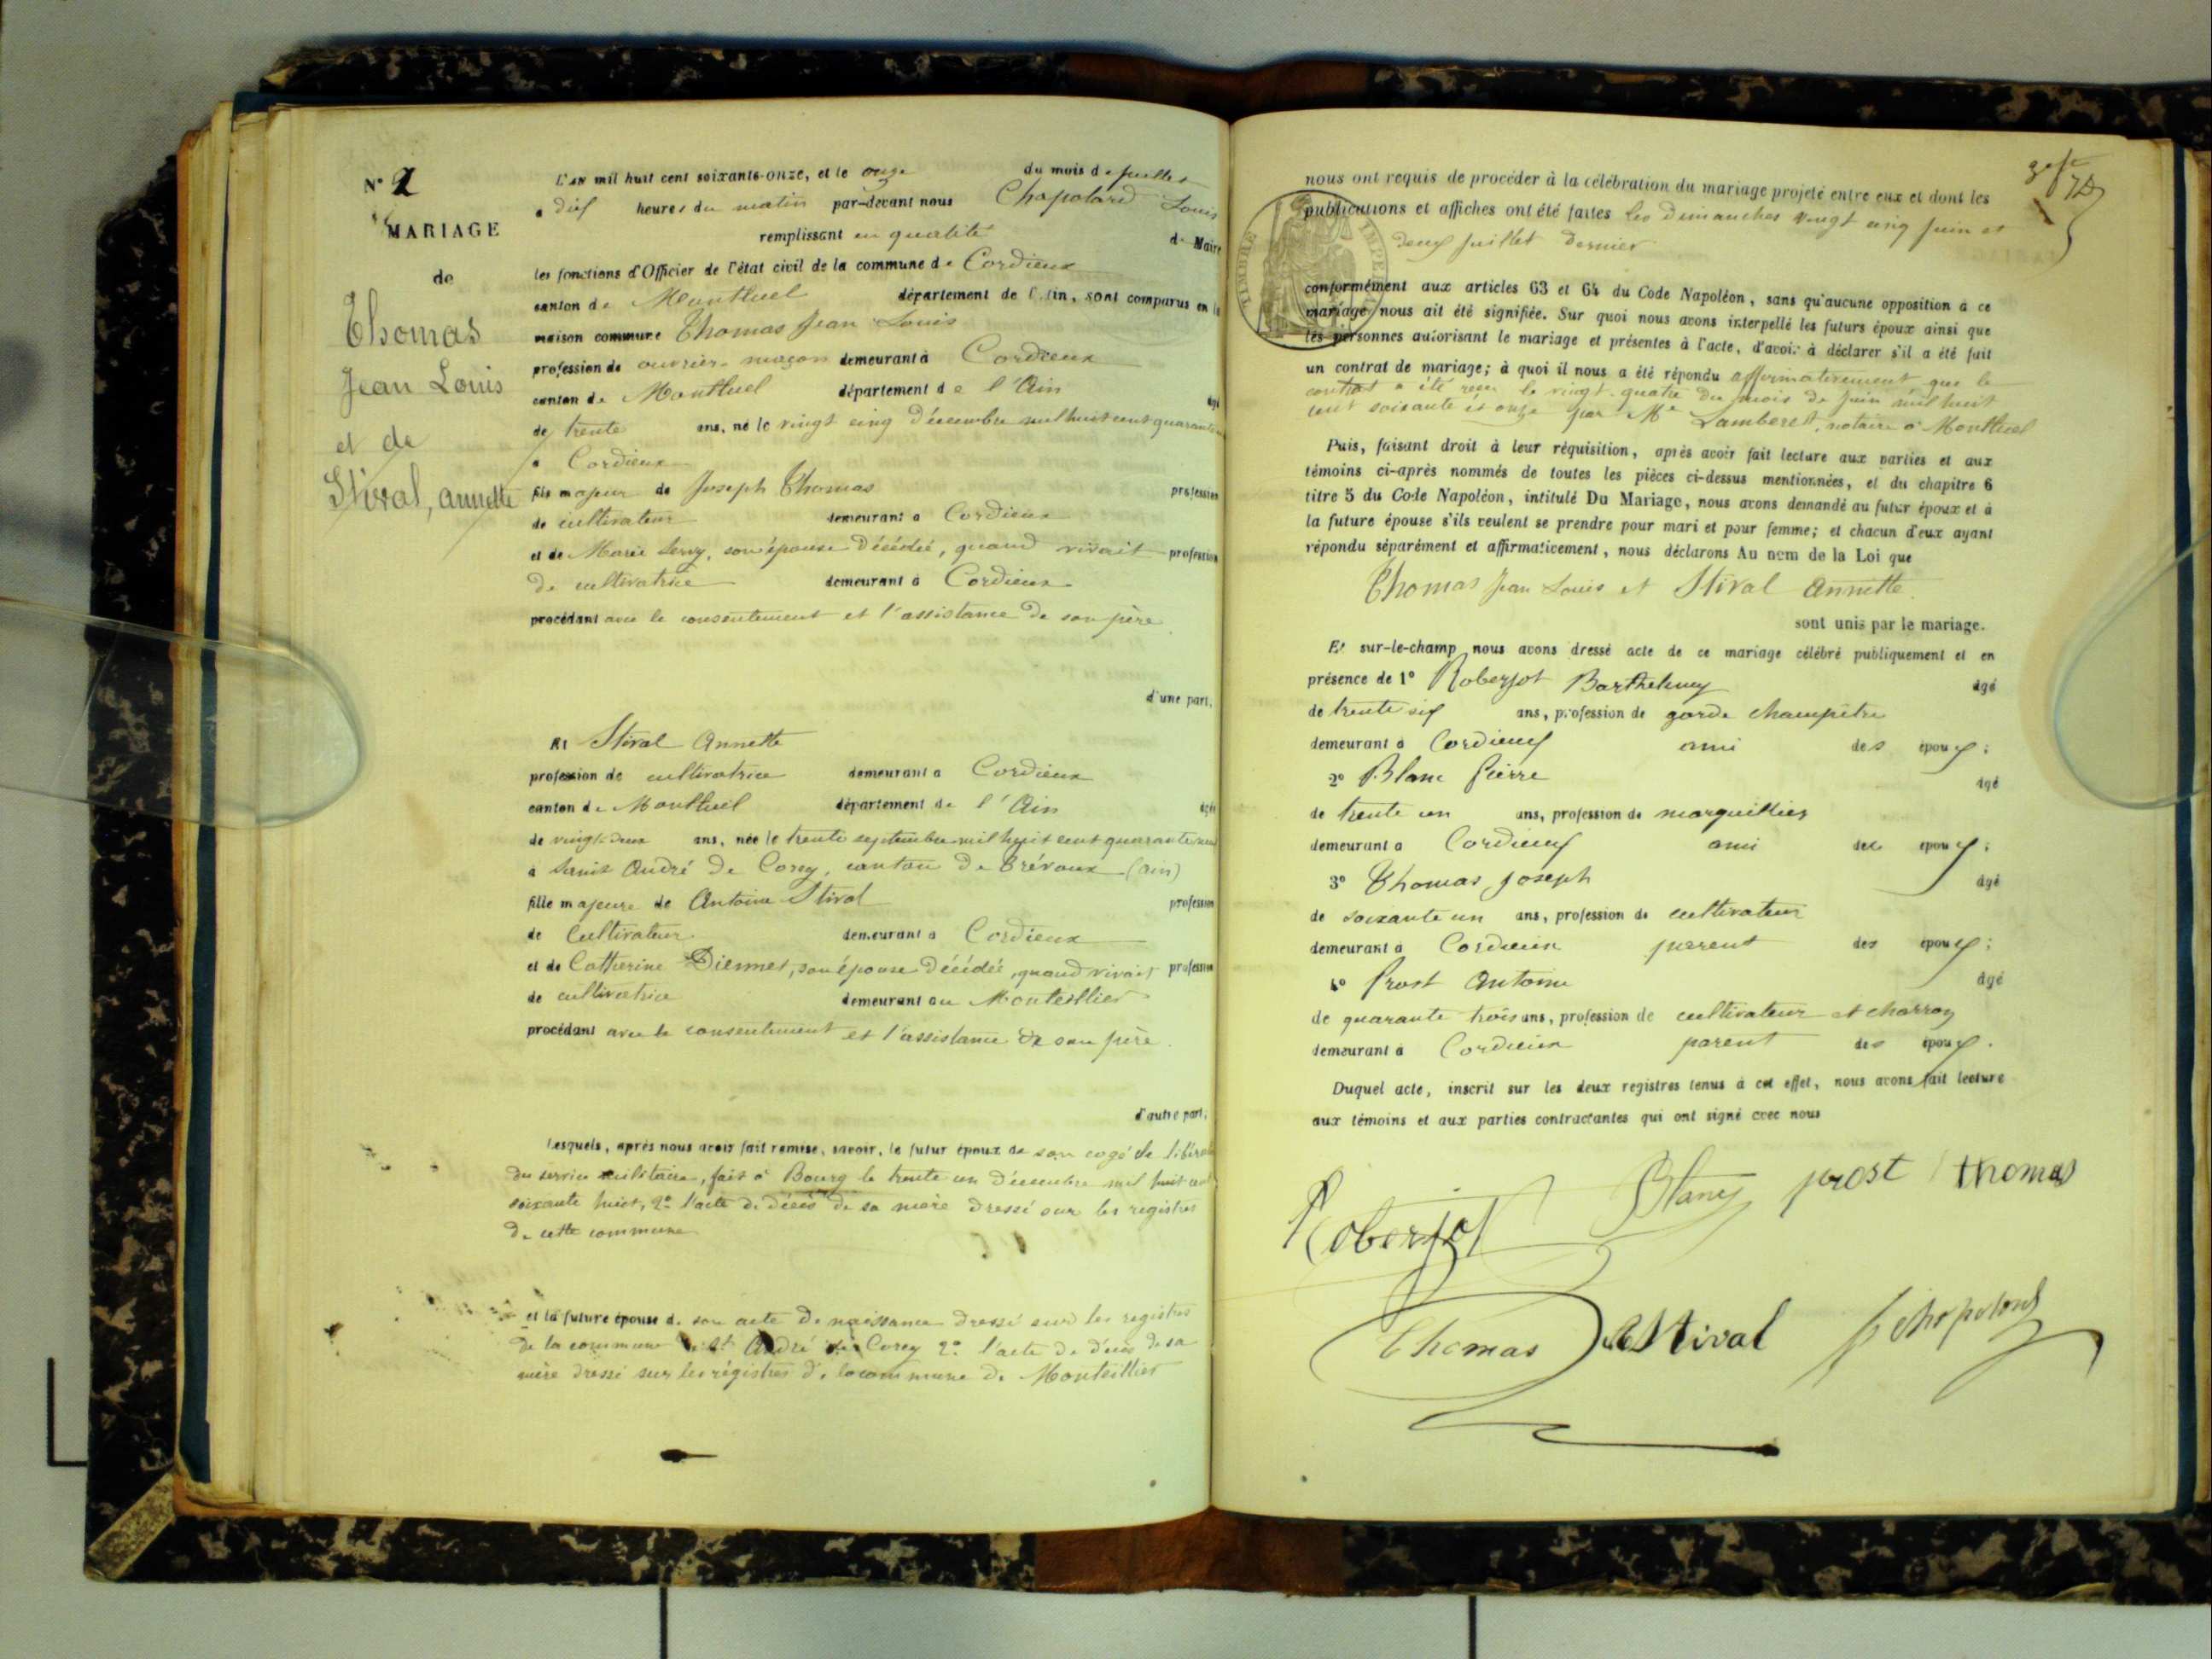 N° 2
MARIAGE
de
Thomas
Jean Louis
et de
Stival, annette
L'an mil huit cent soixante-onze, et le onze du mois de juillet
a dix heures du matin par-devant nous Chapolard Louis
remplissant en qualité de Maire
les fonctions d'Officier de l'état civil de la commune de Cordieux
canton de Montluel département de l'Ain, sont comparus en la
maison commune Thomas Jean Louis
profession de ouvrier-maçon demeurant à Cordieux
canton de Montluel département de l'Ain âgé
de trente ans, né le vingt cinq Décembre mil huit cent quarante
a Cordieux
fils majeur de Joseph Thomas profession
de cultivateur demeurant a Cordieux
et de Marie Servy, son épouse Décédée, quand vivait profession
de cultivatrice demeurant à Cordieux
procédant avec le consentement et l'assistance de son père
d'une part,
Et Stival Annette
profession de cultivatrice demeurant a Cordieux
canton de Montluel département de l'Ain âgée
de vingt-deux ans, née le trente septembre mil huit cent quarante neuf
a Saint André de Corcy, canton de Trévoux (ain)
fille majeure de Antoine Stival profession
de Cultivateur demeurant a Cordieux
et de Catherine Diennet, son épouse Décédée, quand vivait profession
de cultivatrice demeurant au Montellier
procédant avec le consentement et l'assistance de son père
d'autre part,
Lesquels, après nous avoir fait remise, savoir, le futur époux de son cogé de libéra
du service militaire, fait à Bourg le trente un Décembre mil huit cent
soixante huit, 2° l'acte de décès de sa mère dressé sur les registres
de cette commune
et la future épouse de son acte de naissance dressé sur les registres
de la commune de St André de Corcy 2° l'acte de décès de sa
mère dressé sur les régistres de la commune de Monteillier
nous ont requis de procéder à la célébration du mariage projeté entre eux et dont les
publications et affiches ont été faites les Dimanches vingt cinq juin et
deux juillet dernier
TIMBRE IMPÉRIAL
conformément aux articles 63 et 64 du Code Napoléon, sans qu'aucune opposition à ce
mariage nous ait été signifiée. Sur quoi nous avons interpellé les futurs époux ainsi que
les personnes autorisant le mariage et présentes à l'acte, d'avoir à déclarer s'il a été fait
un contrat de mariage; à quoi il nous a été répondu affirmativement que le
contrat a été reçu le vingt-quatre du mois de juin mil huit
cent soixante et onze par Me Lambert, notaire à Montluel
Puis, faisant droit à leur réquisition, après avoir fait lecture aux parties et aux
témoins ci-après nommés de toutes les pièces ci-dessus mentionnées, et du chapitre 6
titre 5 du Code Napoléon, intitulé Du Mariage, nous avons demandé au futur époux et à
la future épouse s'ils veulent se prendre pour mari et pour femme; et chacun d'eux ayant
répondu séparément et affirmativement, nous déclarons Au nom de la Loi que
Thomas Jean Louis et Stival Annette
sont unis par le mariage.
Et sur-le-champ nous avons dressé acte de ce mariage célébré publiquement et en
présence de 1° Roberjot Barthelemy âgé
de trente six ans, profession de garde champêtre
demeurant à Cordieux ami des époux;
2° Blanc Pierre âgé
de trente un ans, profession de marguillier
demeurant a Cordieux ami des époux;
3° Thomas Joseph âgé
de soixante un ans, profession de cultivateur
demeurant à Cordieux parent des époux;
4° Prost Antoine âgé
de quarante trois ans, profession de cultivateur et charron
demeurant à Cordieux parent des époux.
Duquel acte, inscrit sur les deux registres tenus à cet effet, nous avons fait lecture
aux témoins et aux parties contractantes qui ont signé avec nous
Roberjot Blanc prost thomas
Thomas A Stival L Chapolard